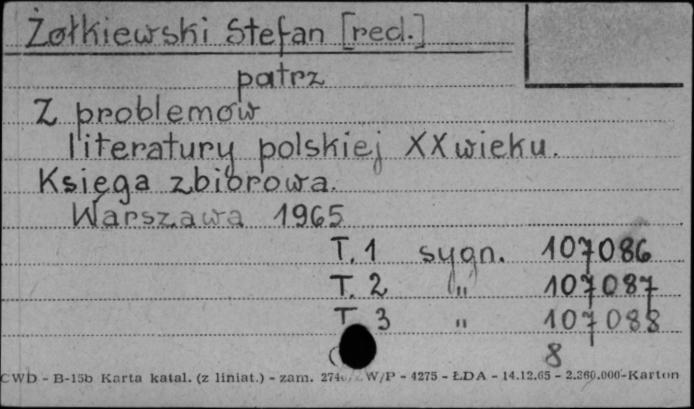 Żołkiewski Stefan [red.]
patrz
Z problemów
literatury polskiej XX wieku.
Księga zbiorowa.
Warszawa 1965
T. 1 sygn. 107086
T. 2 " 107087
T. 3 " 107088
8
CWD - B-15b Karta katal. (z liniat.) - zam. W/P - 4275 - ŁDA - 14.12.65 - 2.360.000-Karton